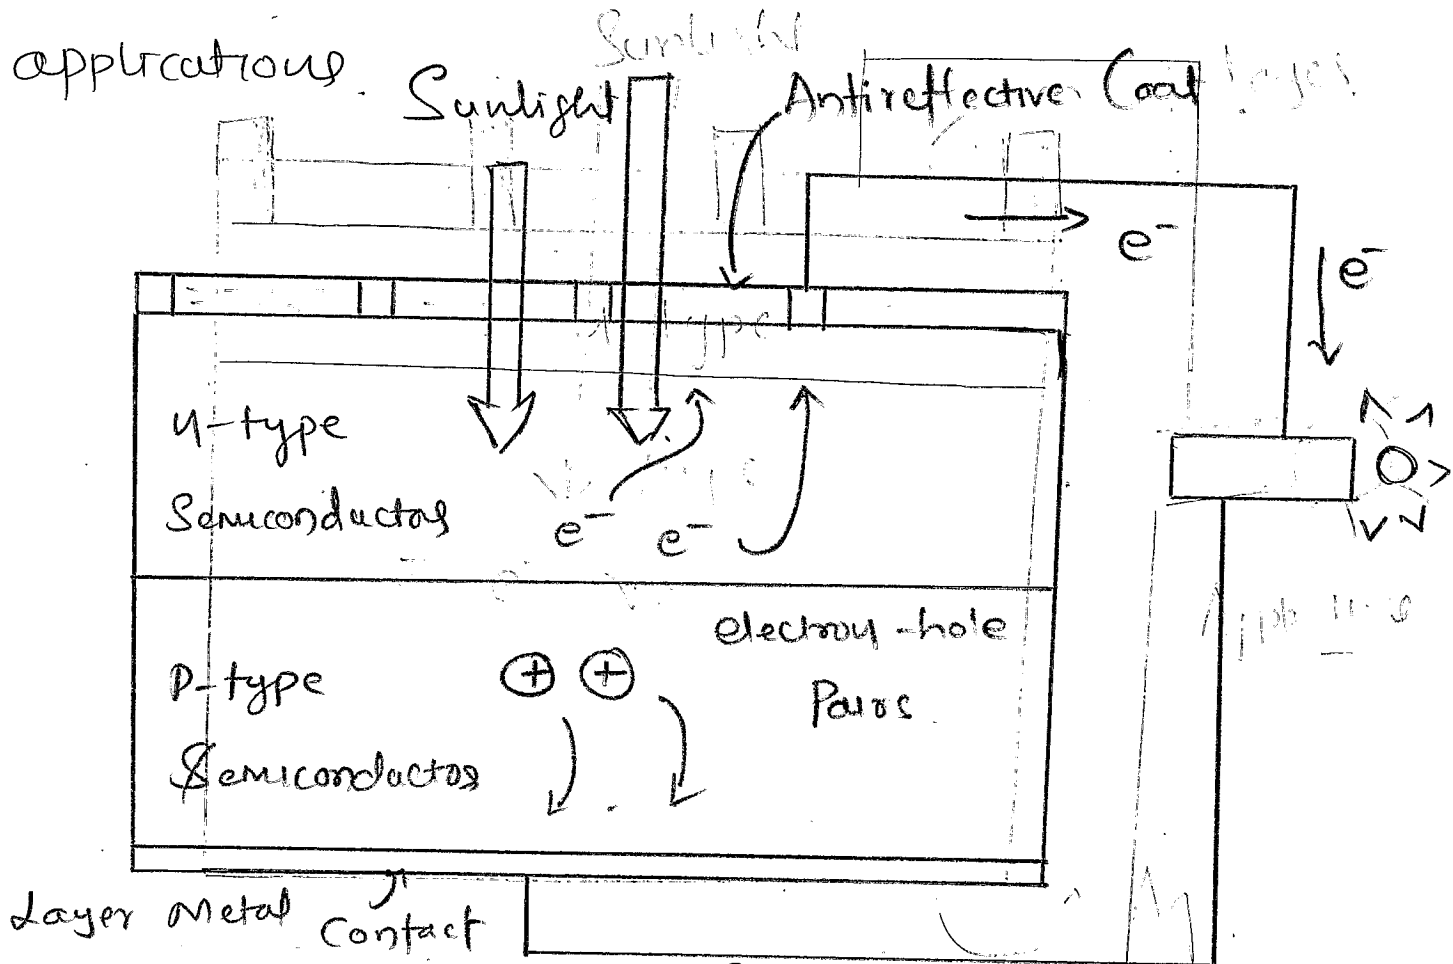 applications.
Sunlight
Antireflective Coat
e⁻
e⁻
n-type
Semiconductor
e⁻ e⁻
electron-hole
Pairs.
P-type
Semiconductor
+ +
Layer Metal Contact